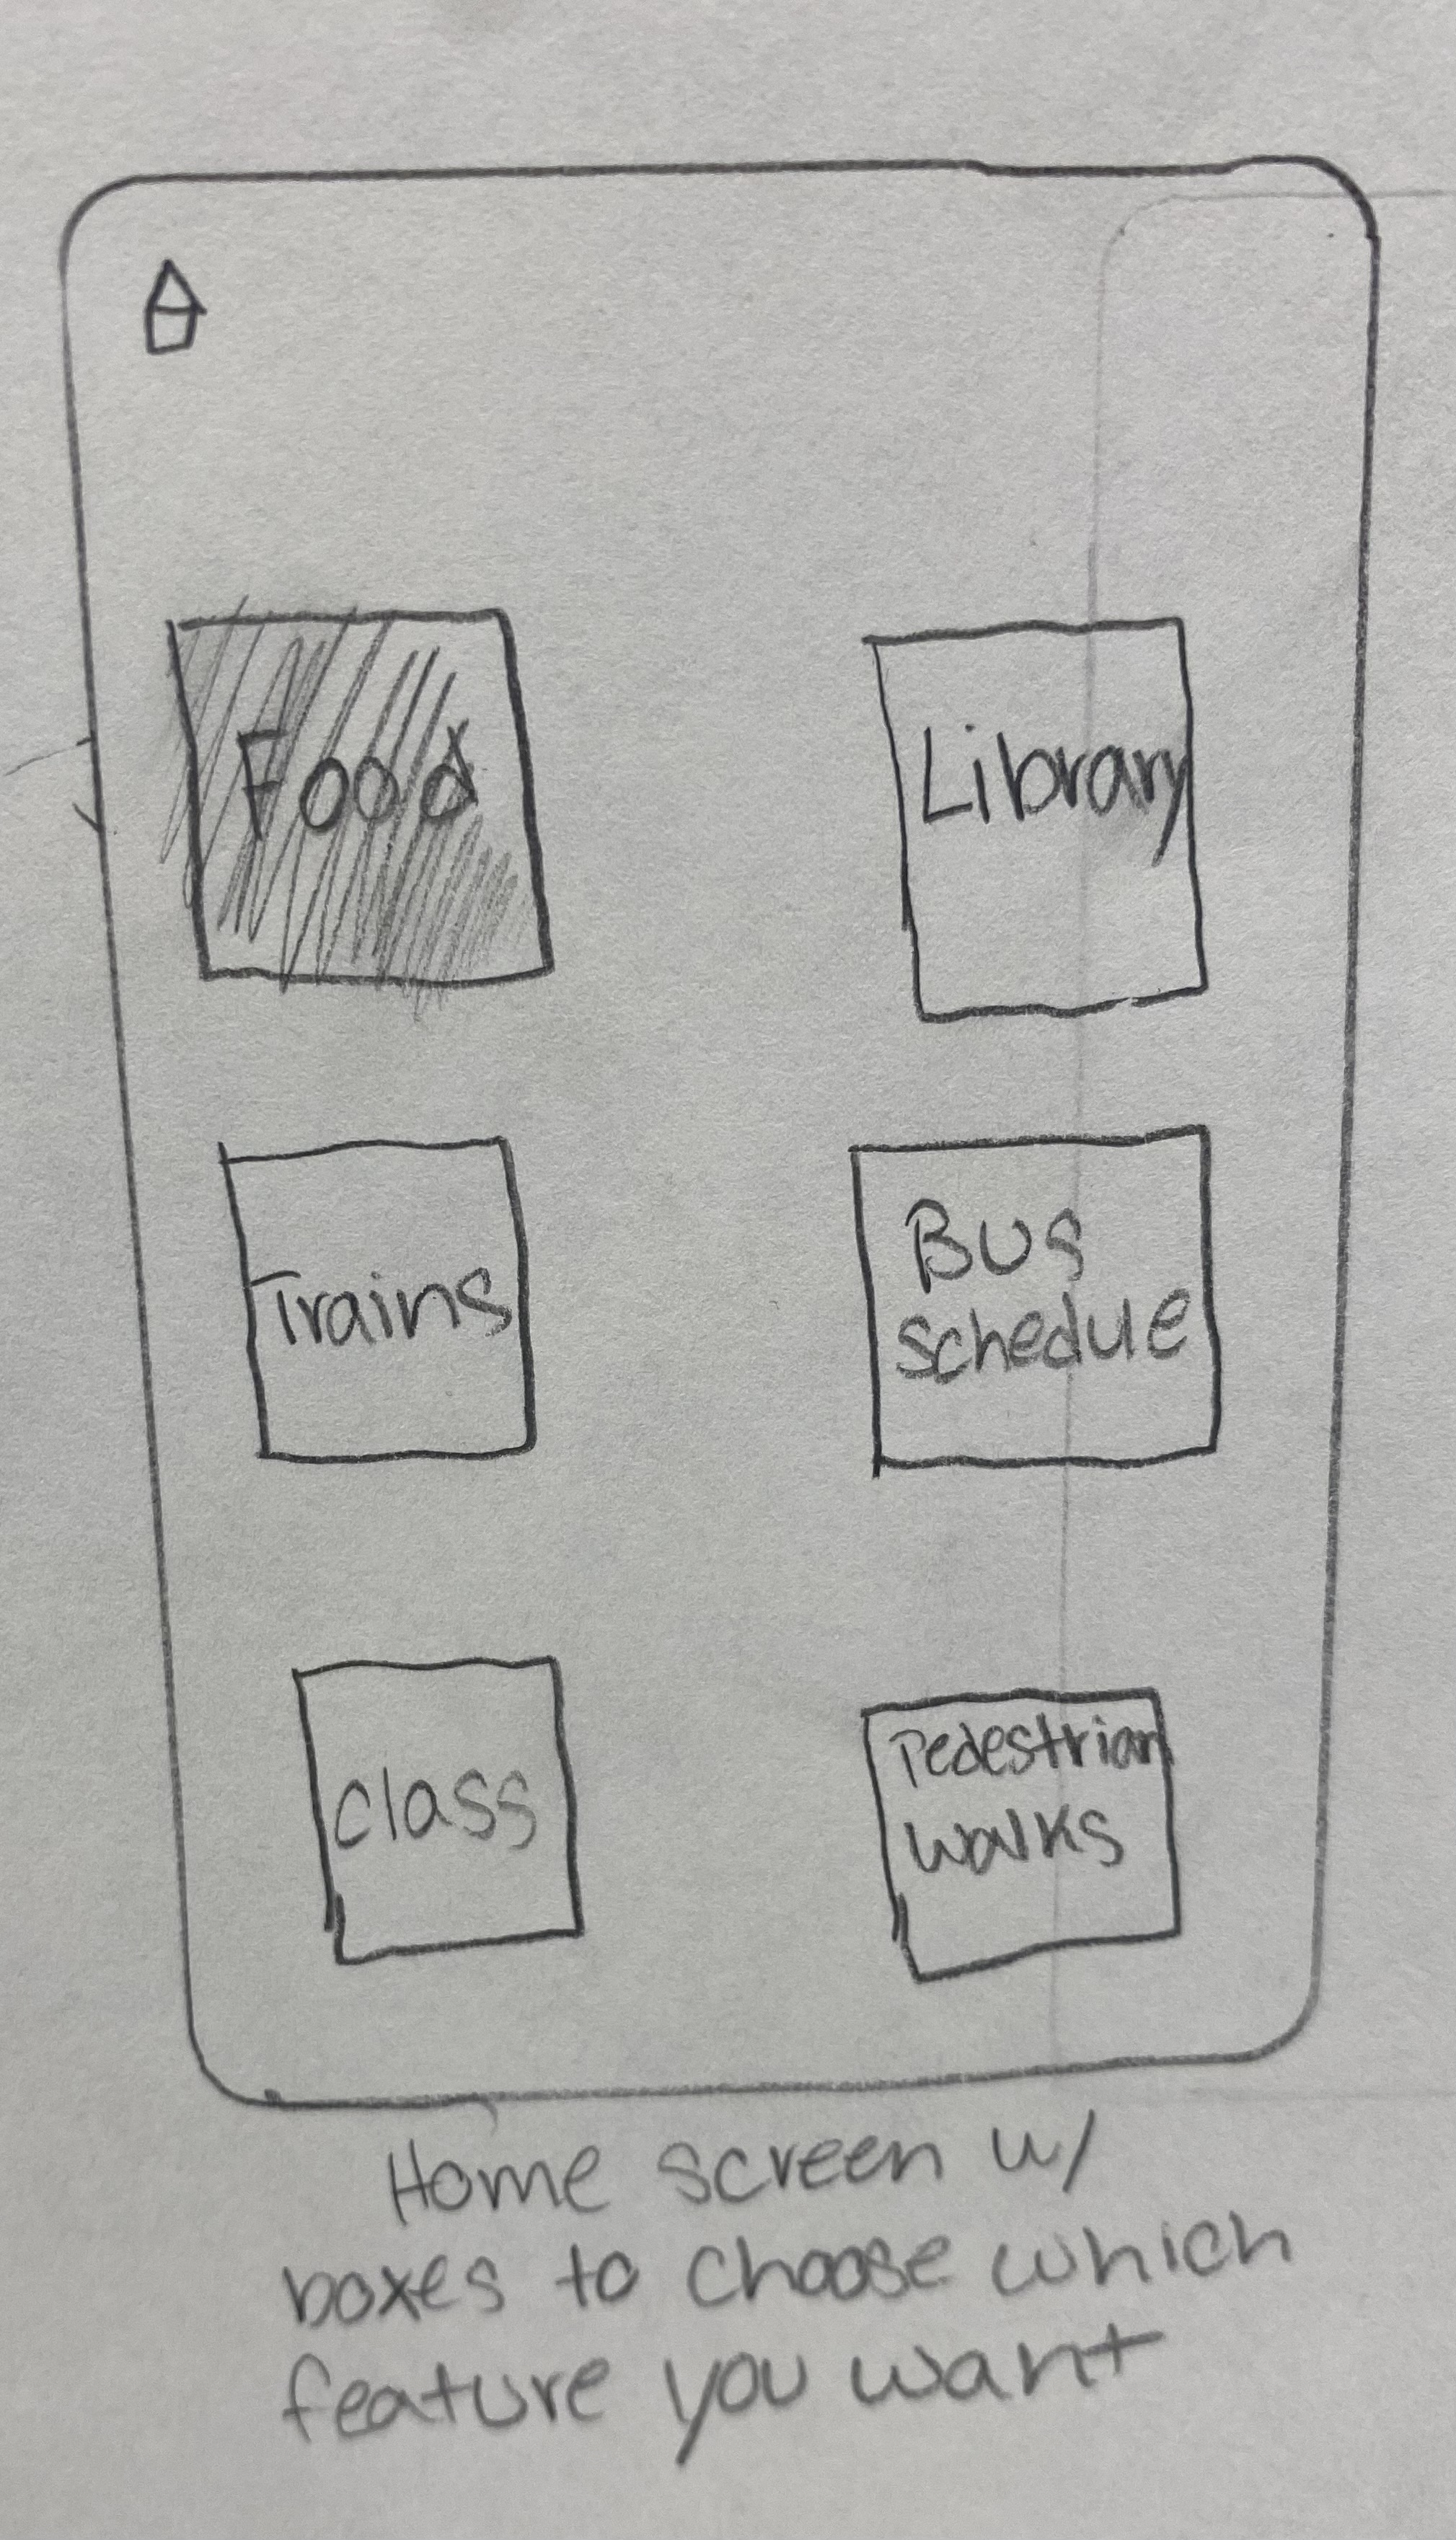 Food
Library
Trains
Bus
schedue
class
Pedestrian
walks
Home screen w/
boxes to choose which
feature you want